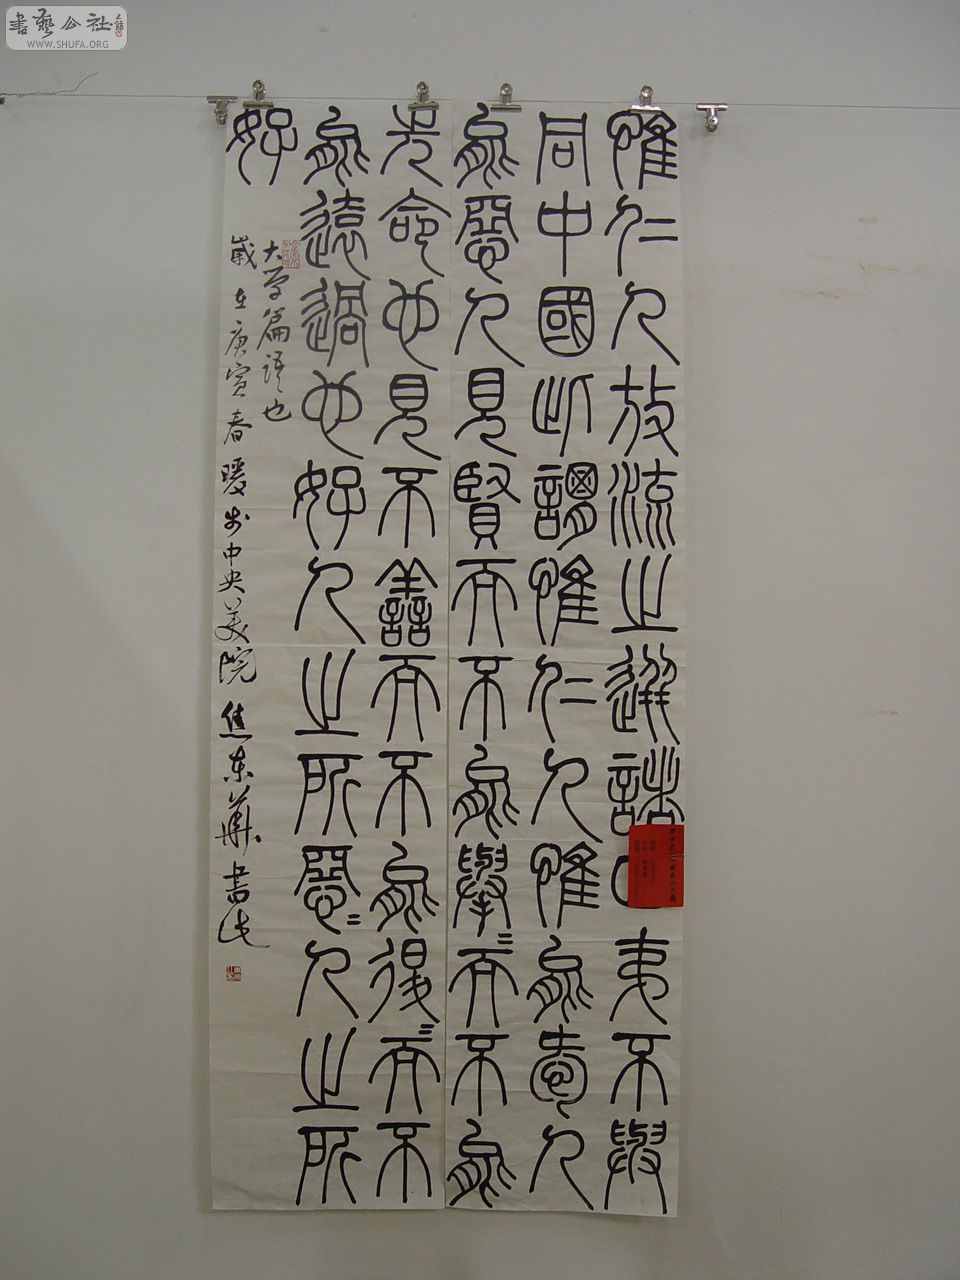 書藝公社
WWW.SHUFA.ORG
惟仁人放流之迸諸夷不與
同中國此謂惟仁人惟能愛人
能惡人見賢而不能舉〻而不能
先命也見不善而不能退〻而不
能遠過也好人之所惡〻人之所
好
大學篇語也
歲在庚寅春暖於中央美院焦東華書